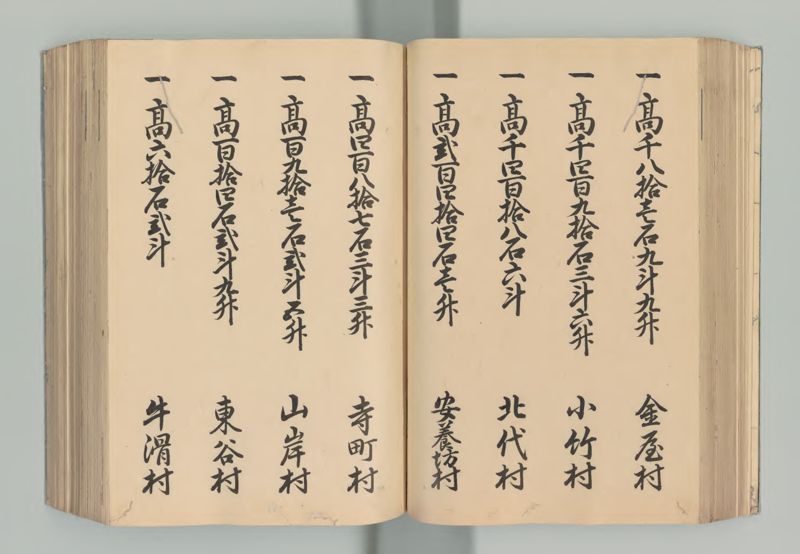 一高千八拾壱石九斗九升 金屋村
一高千四百九拾石三斗六升 小竹村
一高千四百拾八石六斗 北代村
一高弐百四拾四石壱升 安養坊村
一高四百八拾七石三斗三升 寺町村
一高百九拾壱石弐斗五升 山岸村
一高百拾四石弐斗九升 東谷村
一高六拾石弐斗 牛滑村